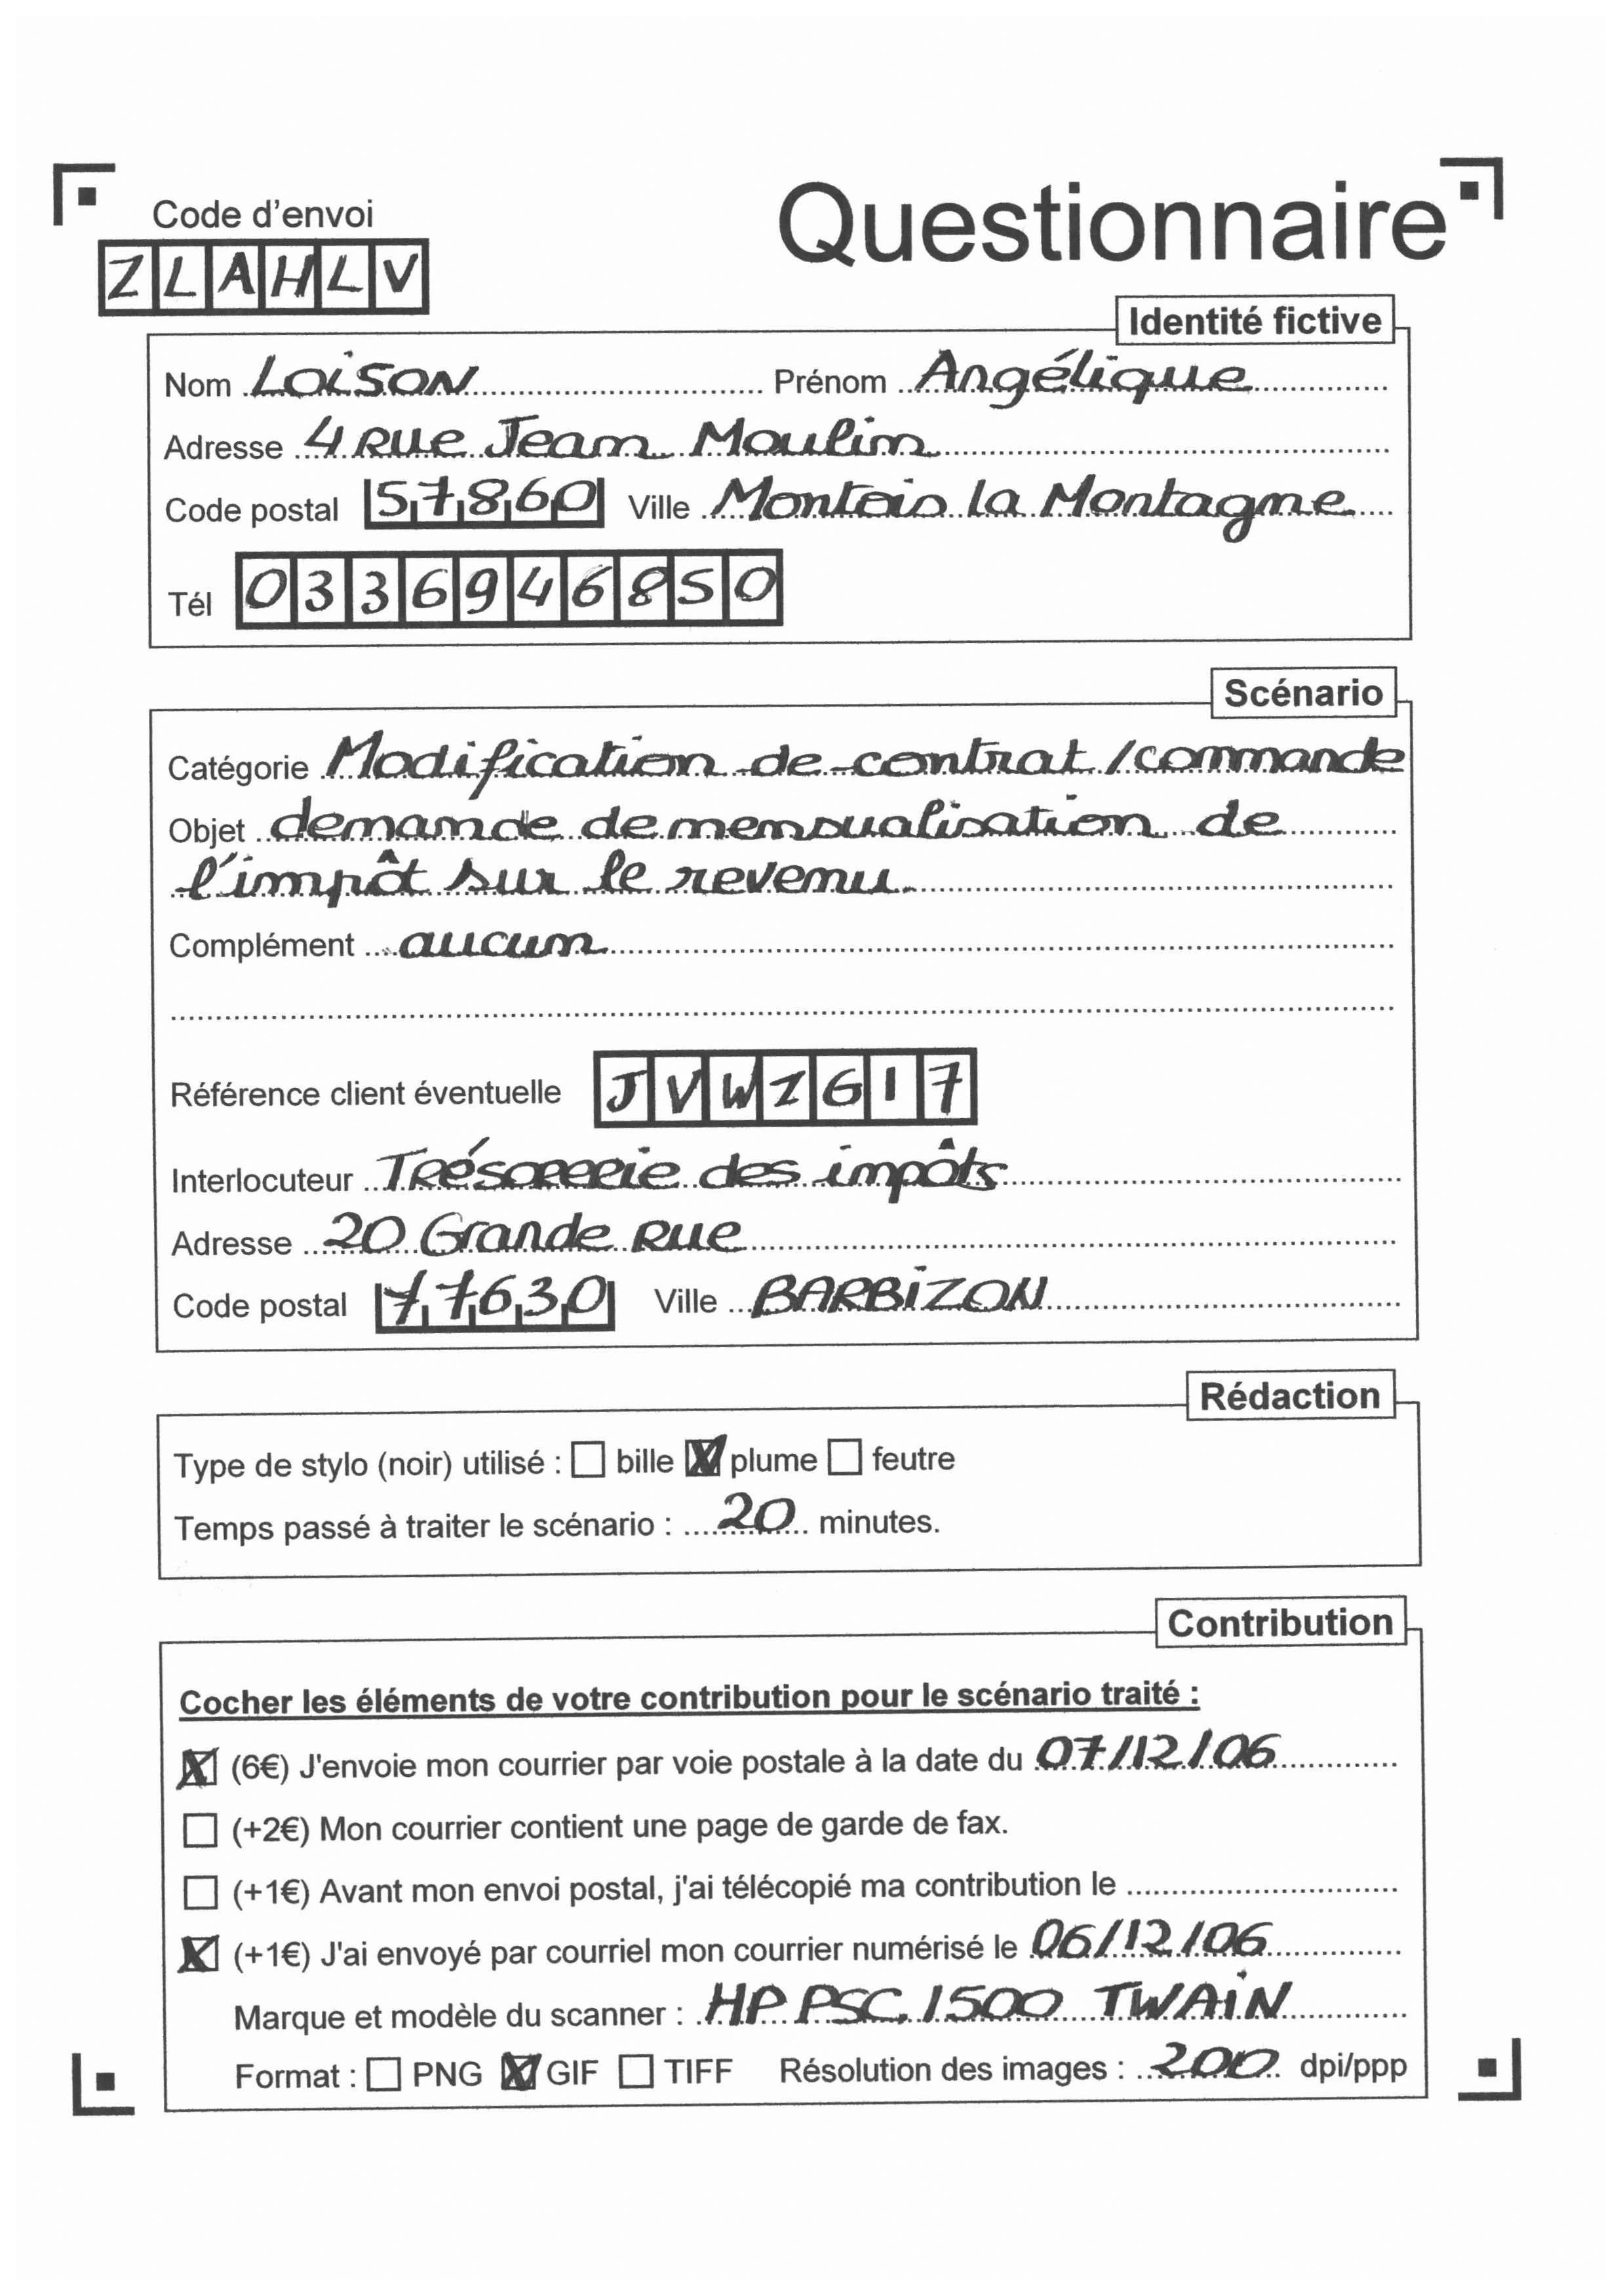 Code d'envoi
Questionnaire
ZLAHLV
Identité fictive
Nom LOISON Prénom Angélique
Adresse 4 Rue Jean Moulin
Code postal 57860 Ville Montois la Montagne
Tél 0336946850
Scénario
Catégorie Modification de contrat/commande
Objet demande de mensualisation de
l'impôt sur le revenu.
Complément aucun
Référence client éventuelle JVWZG17
Interlocuteur Trésorerie des impôts
Adresse 20 Grande Rue
Code postal 77630 Ville BARBIZON
Rédaction
Type de stylo (noir) utilisé : bille plume feutre
Temps passé à traiter le scénario : 20 minutes.
Contribution
Cocher les éléments de votre contribution pour le scénario traité :
(6€) J'envoie mon courrier par voie postale à la date du 07/12/06
(+2€) Mon courrier contient une page de garde de fax.
(+1€) Avant mon envoi postal, j'ai télécopié ma contribution le
(+1€) J'ai envoyé par courriel mon courrier numérisé le 06/12/06
Marque et modèle du scanner : HP PSC 1500 TWAIN
Format : PNG GIF TIFF Résolution des images : 200 dpi/ppp